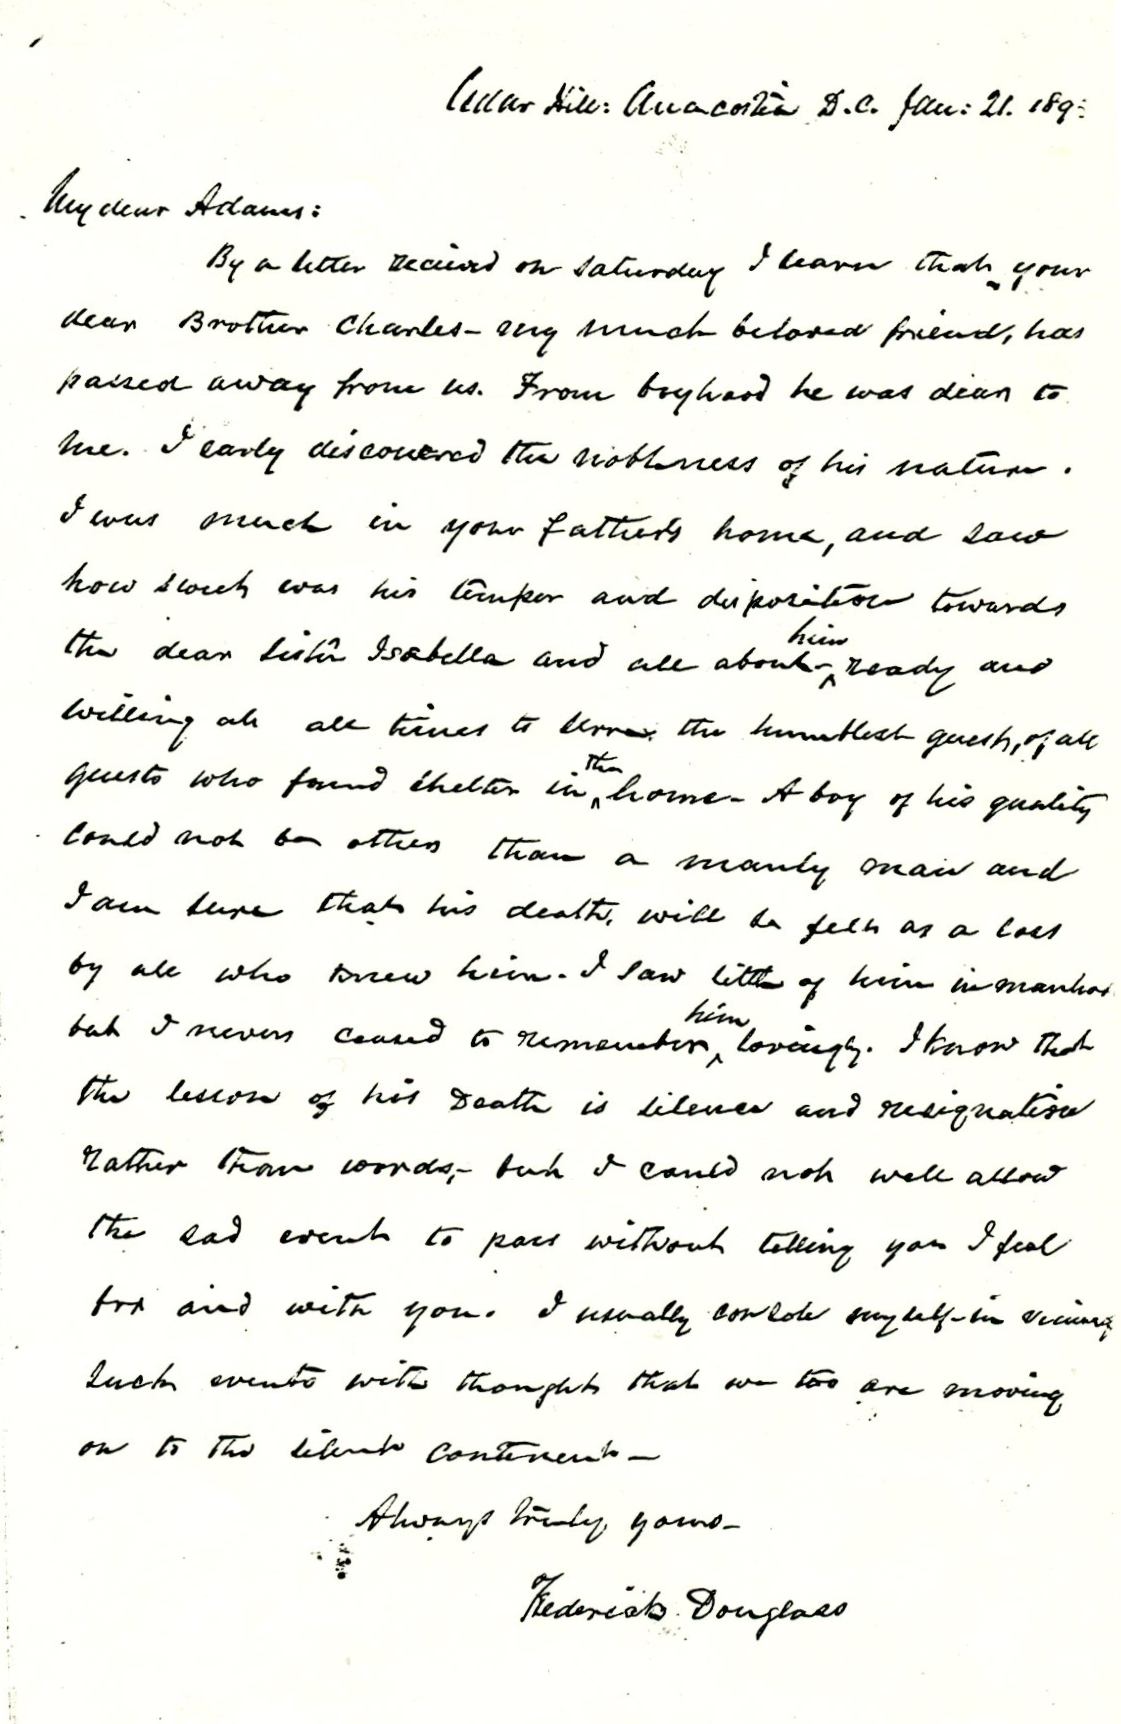 Cedar Hill: Anacostia D.C. Jan: 21. 189
My dear Adams:
By a letter recieved on Saturday I learn that your
dear Brother Charles - my much beloved friend, has
passed away from us. From boyhood he was dear to
me. I early discovered the nobleness of his nature.
I was much in your father's home, and saw
how sweet was his temper and disposition towards
the dear sister Isabella and all about him - ready and
willing at all times to serve the humblest guest, of all
guests who found shelter in the home - A boy of his quality
could not be other than a manly man and
I am sure that his death, will be felt as a loss
by all who knew him. I saw little of him in manhoo
but I never ceased to remember him lovingly. I know that
the lesson of his Death is silence and resignation
rather than words, - but I could not well allow
the sad event to pass without telling you I feel
for and with you. I usually console myself in viewing
such events with thought that we too are moving
on to the silent continent -
Always truly yours -
Frederick Douglass